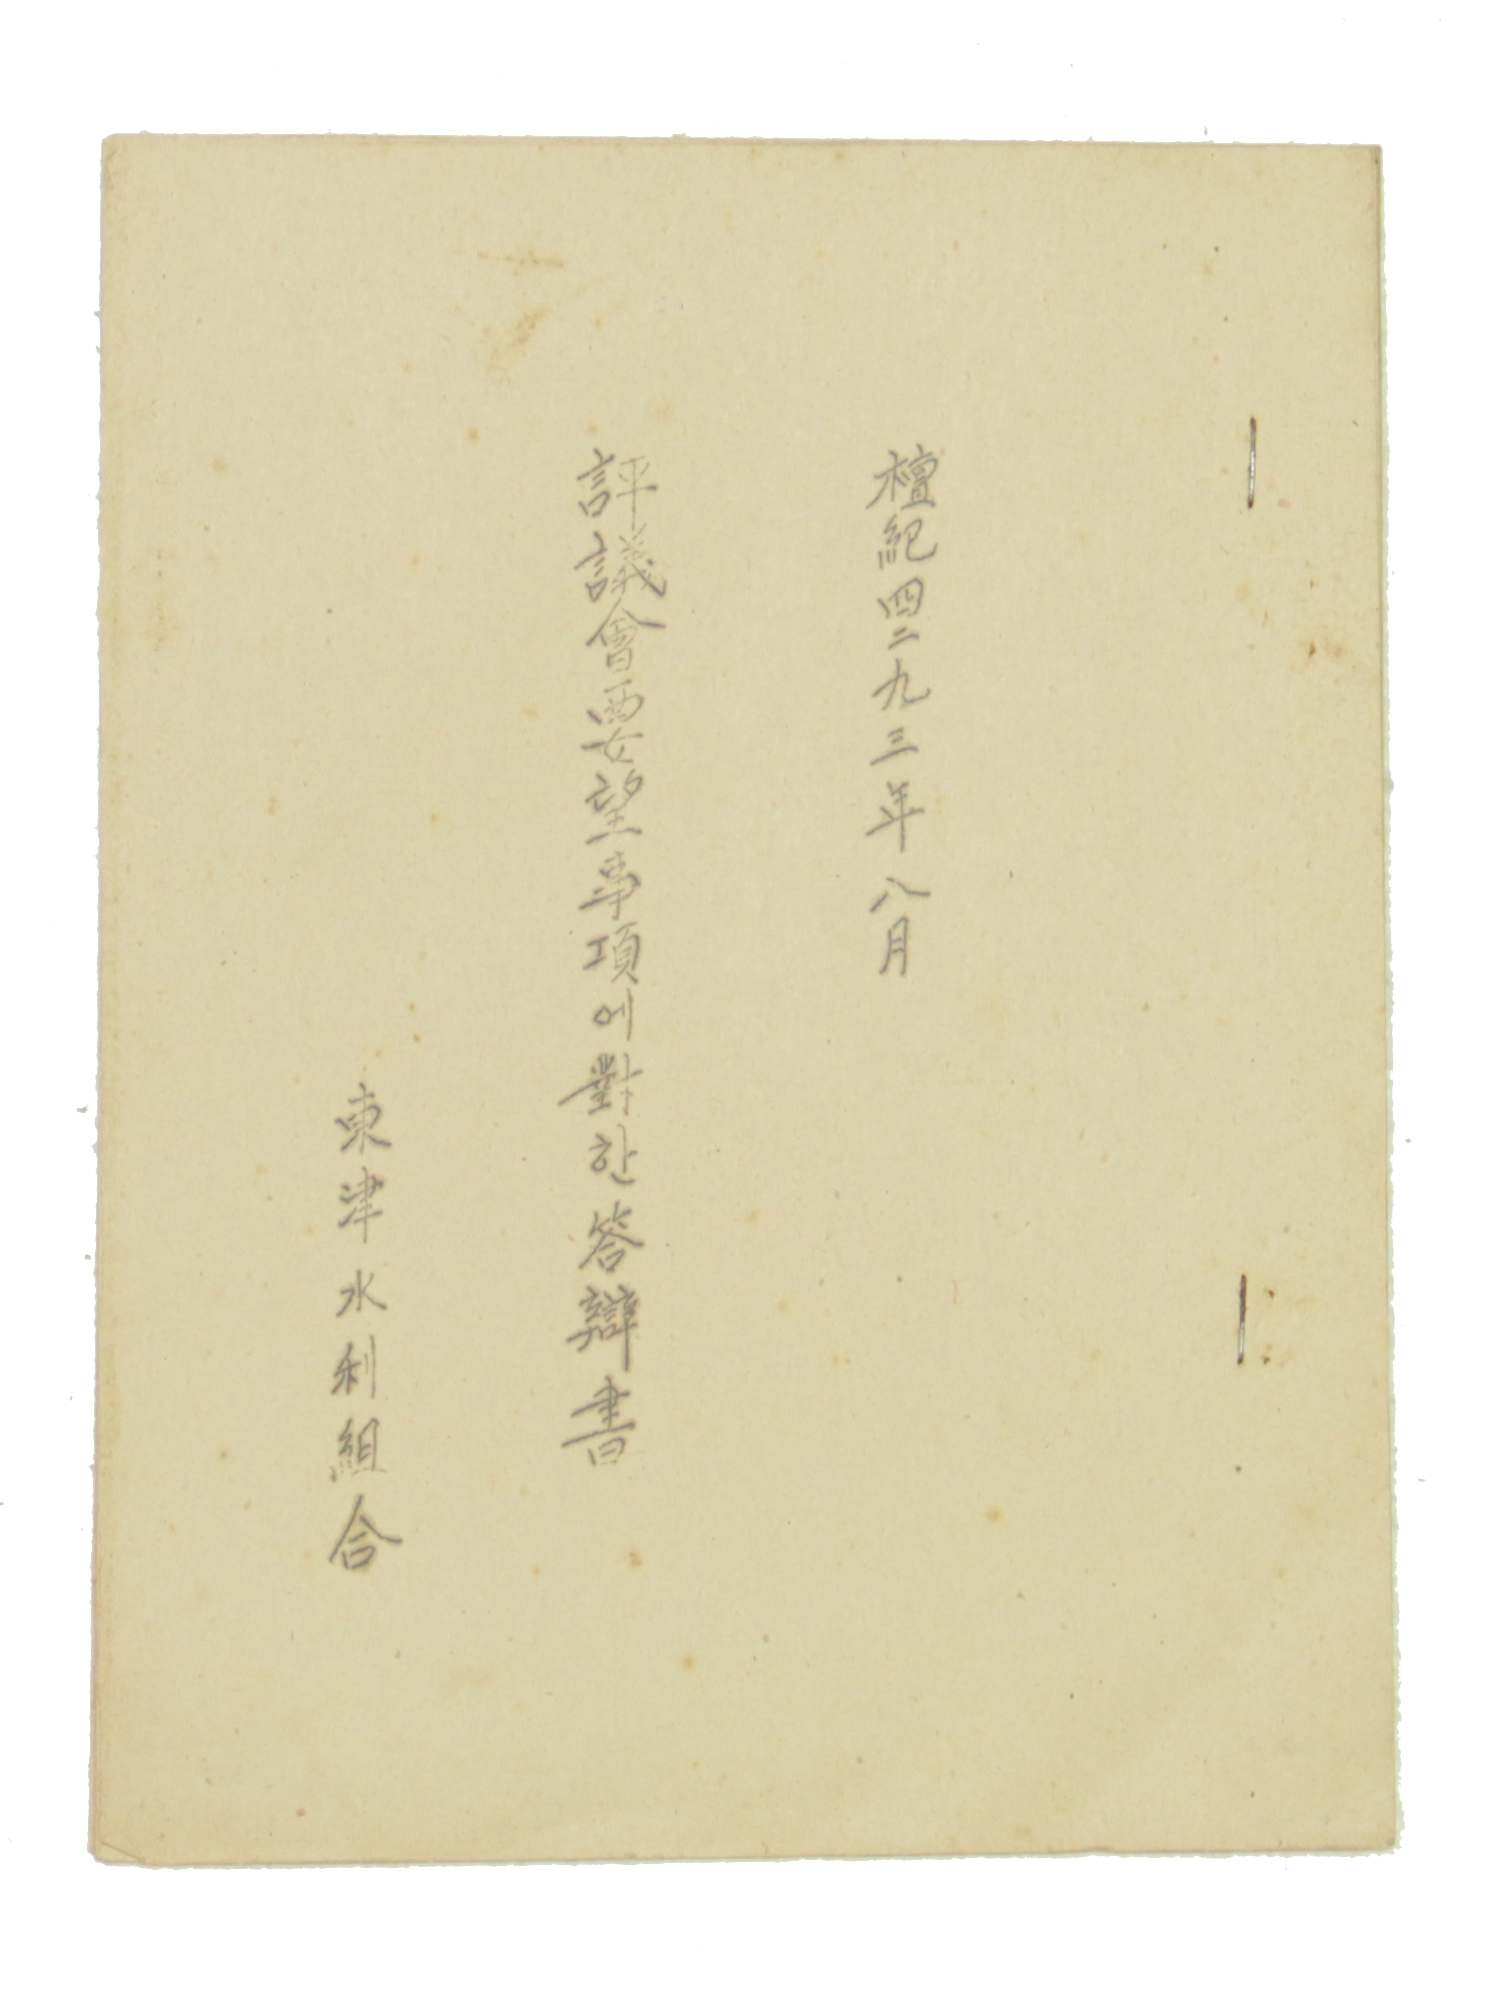 檀紀四二九三年 八月
評議會要望事項에對한答辯書
東津水利組合